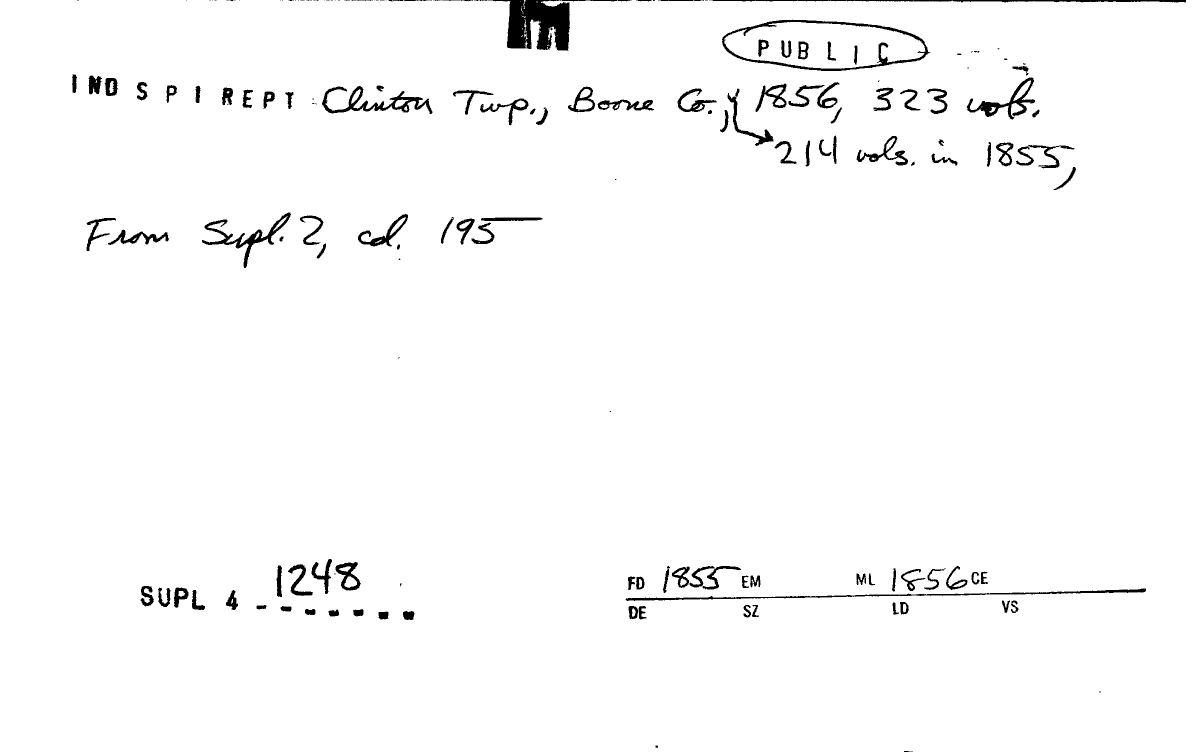 PUBLIC
IND SPI REPT Clinton Twp., Boone Co., 1856, 323 vols.
214 vols. in 1855,
From Supl. 2, cd. 195
SUPL 4 1248
FD 1855 EM ML 1856 CE
DE SZ LD VS